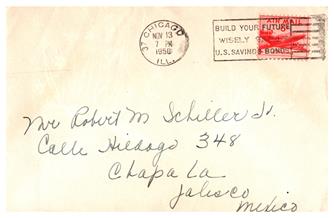 37 CHICAGO
NOV 13
7 PM
1950
ILL.
BUILD YOUR FUTURE
WISELY
U.S. SAVINGS BONDS
AIR MAIL
Mr Robert M Schiller Jr.
Calle Hildago 348
Chapa La
Jalisco
Mexico